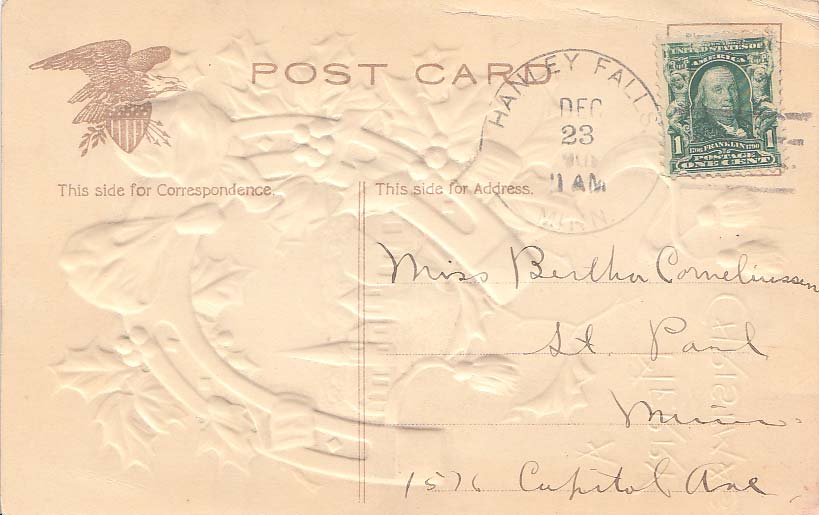 POST CARD
HANLEY FALLS
DEC
23
11 AM
MINN.
UNITED STATES OF
AMERICA
1 1706 FRANKLIN 1790 1
POSTAGE
ONE CENT
This side for Correspondence.
This side for Address.
Miss Bertha Corneliussen
St. Paul
Minn.
1576 Capitol Ave